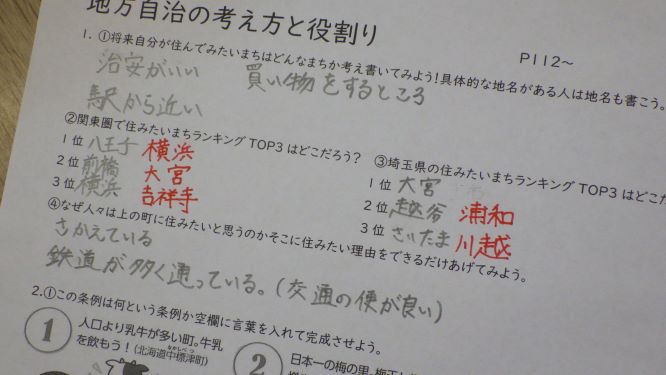 地方自治の考え方と役割り
P112～
1. ①将来自分が住んでみたいまちはどんなまちか考え書いてみよう！具体的な地名がある人は地名も書こう。
治安がいい 買い物をするところ
駅から近い
②関東圏で住みたいまちランキング TOP3 はどこだろう？
1位 八王子 横浜
2位 前橋 大宮
3位 横浜 吉祥寺
③埼玉県の住みたいまちランキング TOP3 はどこだ
1位 大宮
2位 越谷 浦和
3位 さいたま 川越
④なぜ人々は上の町に住みたいと思うのかそこに住みたい理由をできるだけあげてみよう。
さかえている
鉄道が多く通っている。(交通の便が良い)
2.①この条例は何という条例か空欄に言葉を入れて完成させよう。
1 人口より乳牛が多い町。牛乳
を飲もう！(北海道中標津町)
なかしべつ
2 日本一の梅の里。